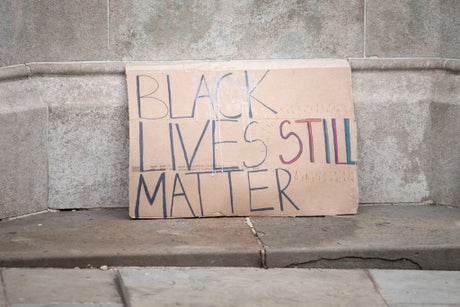 BLACK
LIVES STILL
MATTER